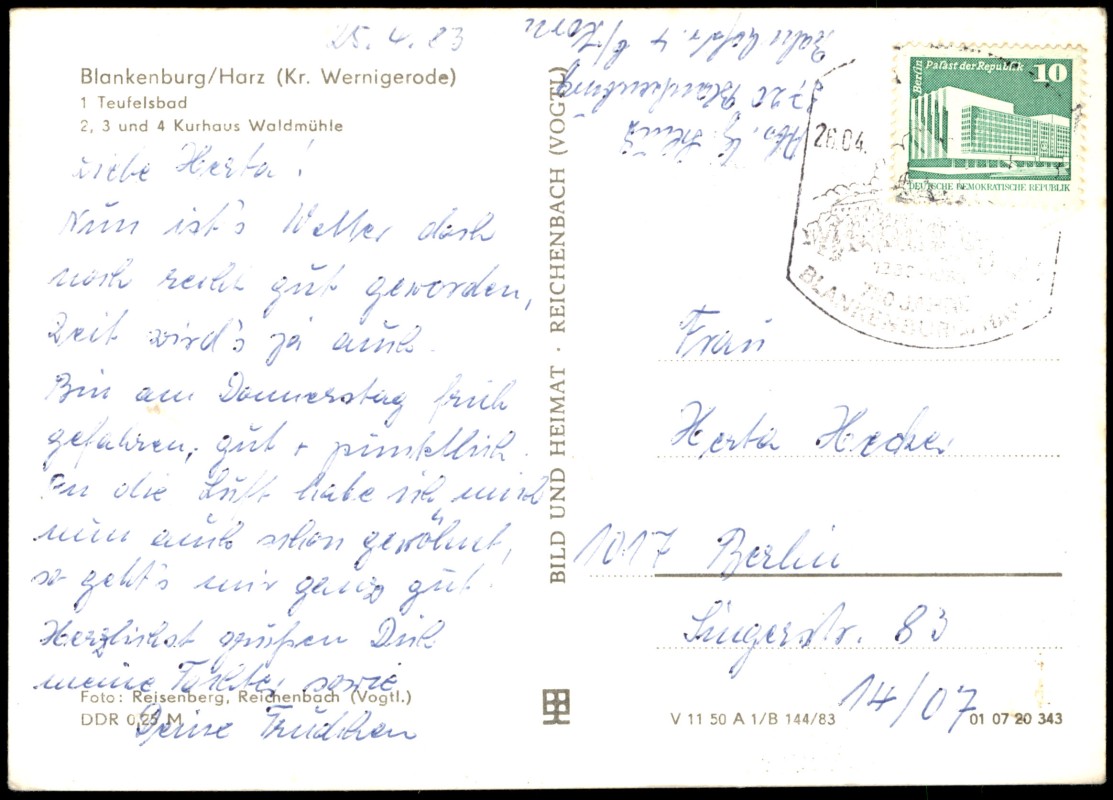 25.4.83
Blankenburg/Harz (Kr. Wernigerode)
1 Teufelsbad
2, 3 und 4 Kurhaus Waldmühle
Liebe Herta!
Nun ist's Wetter doch
noch recht gut geworden,
Zeit wird's ja auch.
Bin am Donnerstag früh
gefahren, gut + pünktlich.
An die Luft habe ich mich
nun auch schon gewöhnt,
so geht's mir ganz gut!
Herzlichst grüßen Dich
meine Tochter sowie
Deine Trudchen
Foto: Reisenberg, Reichenbach (Vogtl.)
DDR 0,25 M
BILD UND HEIMAT · REICHENBACH (VOGTL)
Abs. G.
3720 Blankenburg
b/Horn
Berlin Palast der Republik 10
DEUTSCHE DEMOKRATISCHE REPUBLIK
26.04.
750 JAHRE
BLANKENBURG
Frau
Herta Hecker
1017 Berlin
Singerstr. 83
14/07
V 11 50 A 1/B 144/83
01 07 20 343